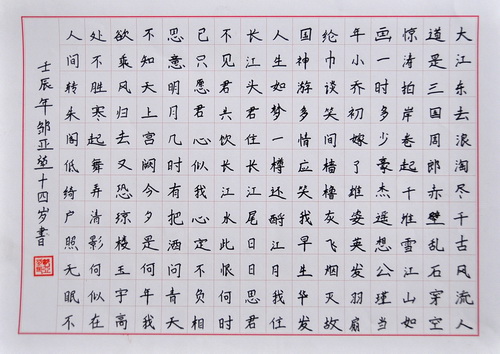 大江东去浪淘尽千古风流人
道是三国周郎赤壁乱石穿空
惊涛拍岸卷起千堆雪江山如
画一时多少豪杰遥想公瑾当
年小乔初嫁了雄姿英发羽扇
纶巾谈笑间樯橹灰飞烟灭故
国神游多情应笑我早生华发
人生如梦一樽还酹江月我住
长江头君住长江尾日日思君
不见君共饮长江水此恨何时
已只愿君心似我心定不负相
思意明月几时有把酒问青天
不知天上宫阙今夕是何年我
欲乘风归去又恐琼楼玉宇高
处不胜寒起舞弄清影何似在
人间转朱阁低绮户照无眠不
壬辰年邹亚十四岁书